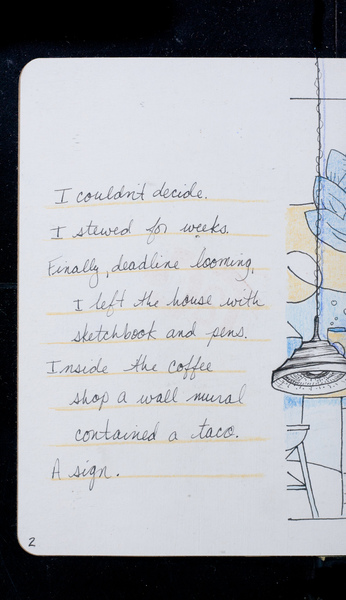 I couldn't decide.
I stewed for weeks.
Finally, deadline looming,
I left the house with
sketchbook and pens.
Inside the coffee
shop a wall mural
contained a taco.
A sign.
2